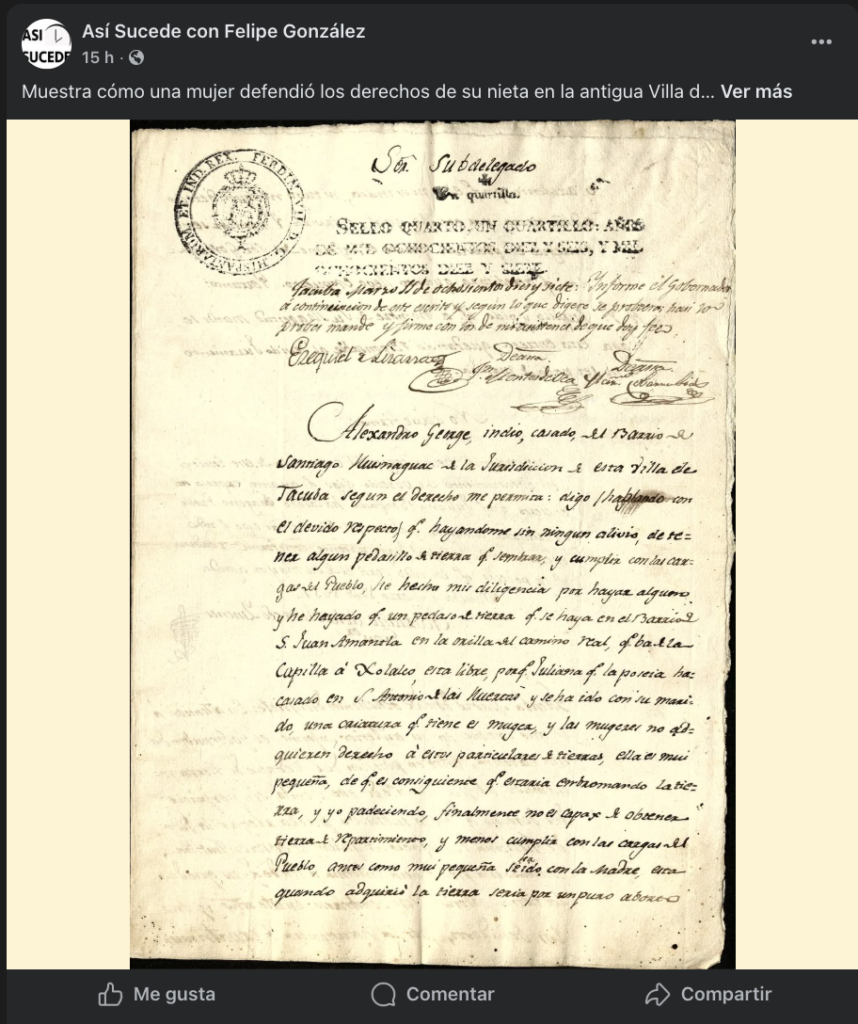 ASI
SUCEDE
Así Sucede con Felipe González
15 h ·
Muestra cómo una mujer defendió los derechos de su nieta en la antigua Villa d... Ver más
FERDIN. VII D. G. HISPANIARUM ET IND. REX.
Sõr. Subdelegado
Un quartillo.
SELLO QUARTO, UN QUARTILLO: AÑOS
DE MIL OCHOCIENTOS DIEZ Y SEIS, Y MIL
OCHOCIENTOS DIEZ Y SIETE.
Tacuba Marzo 11 de ochosientos dies y siete. Informe el Gobernador
a continuacion de este escrito y segun lo que digere se probeera: hasi lo
probei mande y firmo con los de mi asistencia de que doy fee
Ezequiel Lizarza
De assa De assa
Alexandro George, indio, casado, del Barrio de
Santiago Huimaguac de la Jurisdiccion de esta Villa de
Tacuba segun el derecho me permita: digo (hablando con
el devido respecto) q.e hayandome sin ningun alivio, de te-
ner algun pedasillo de tierra q.e sembrar, y cumplir con las car-
gas del Pueblo, he hecho mis diligencia por hayar alguno
y he hayado q.e un pedaso de tierra q.e se haya en el Barrio d
S. Juan Amantla en la orilla del camino real, q.e ba de la
Capilla á Xolalco, esta libre, porq.e Juliana q.e la poseia ha
casado en S. Antonio de las Huertas y se ha ido con su mari-
do, una criatura q.e tiene es muger, y las mugeres no ad-
quieren derecho á estos particulares de tierras, ella es mui
pequeña, de q.e es consiguiente q.e estaria embromando la tie-
rra, y yo padeciendo, finalmente no es capax de obtener
tierra de repartimiento, y menos cumplir con las cargas del
Pueblo, antes como mui pequeña se ha ido con la Madre, esta
quando adquirió la tierra seria por un puro
Me gusta
Comentar
Compartir